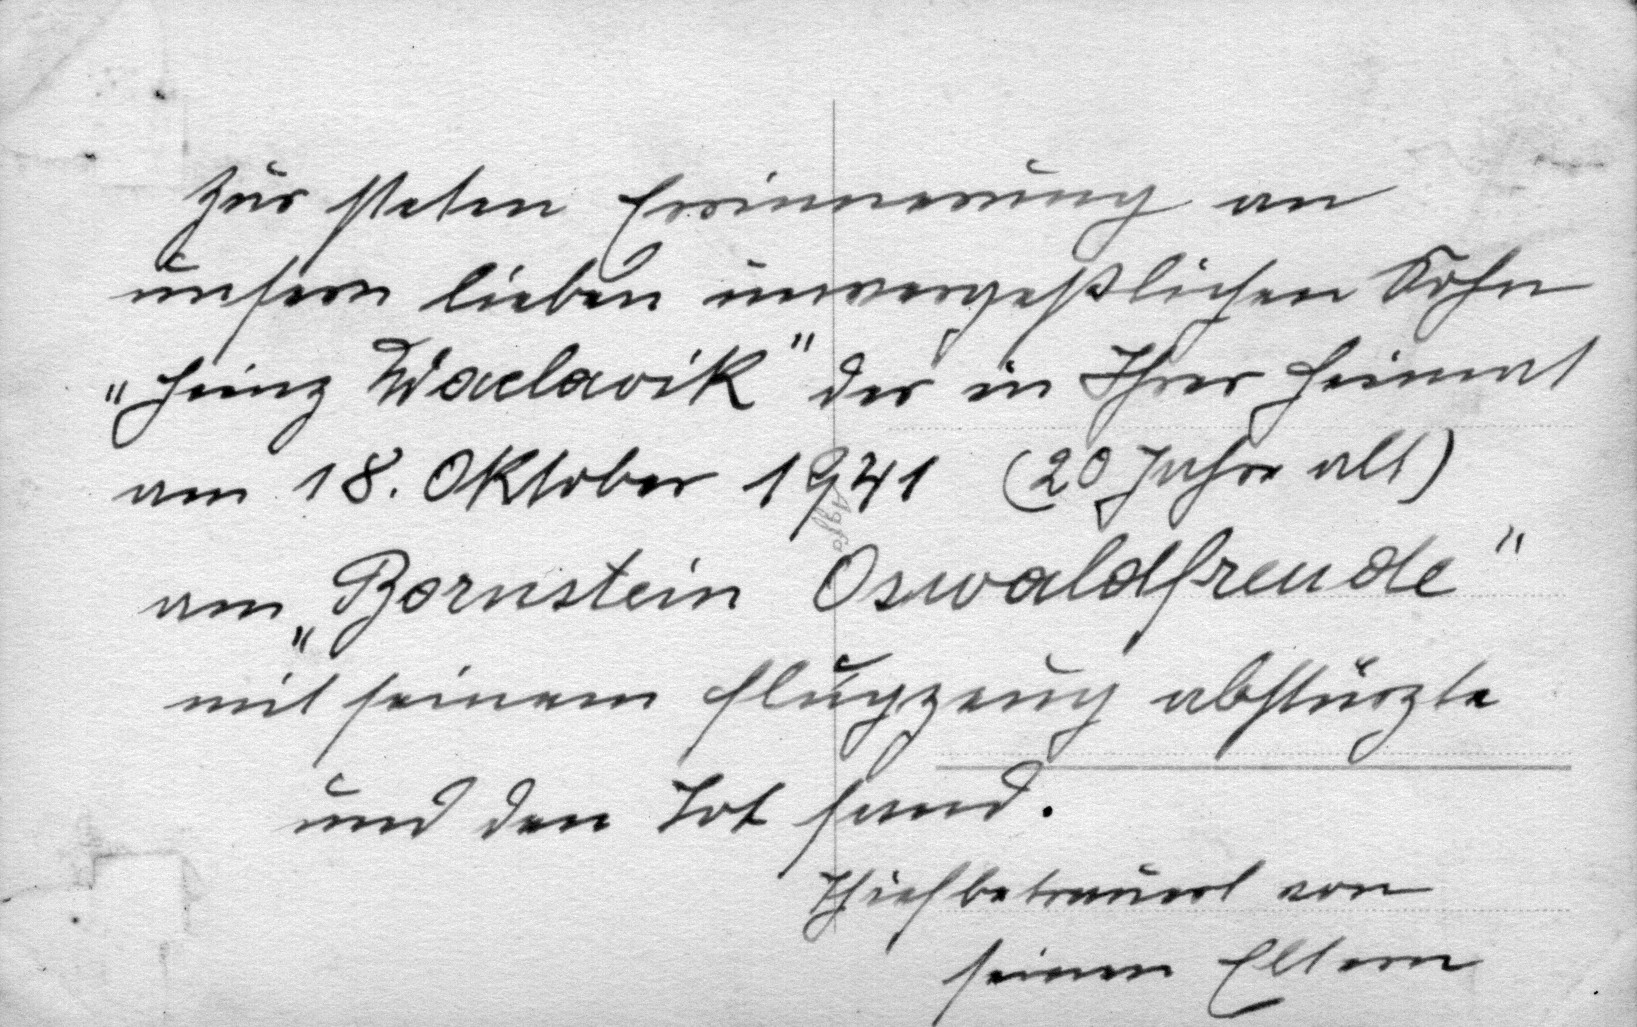 Zur steten Erinnerung an
unsern lieben unvergeßlichen Sohn
„Heinz Waclavik" der in Ihrer Heimat
am 18. Oktober 1941 (20 Jahre alt)
am „Bornstein Oswaldfreude"
mit seinem Flugzeug abstürzte
und den Tot fand.
Thiefbetrauert von
seinen Eltern
Agfa